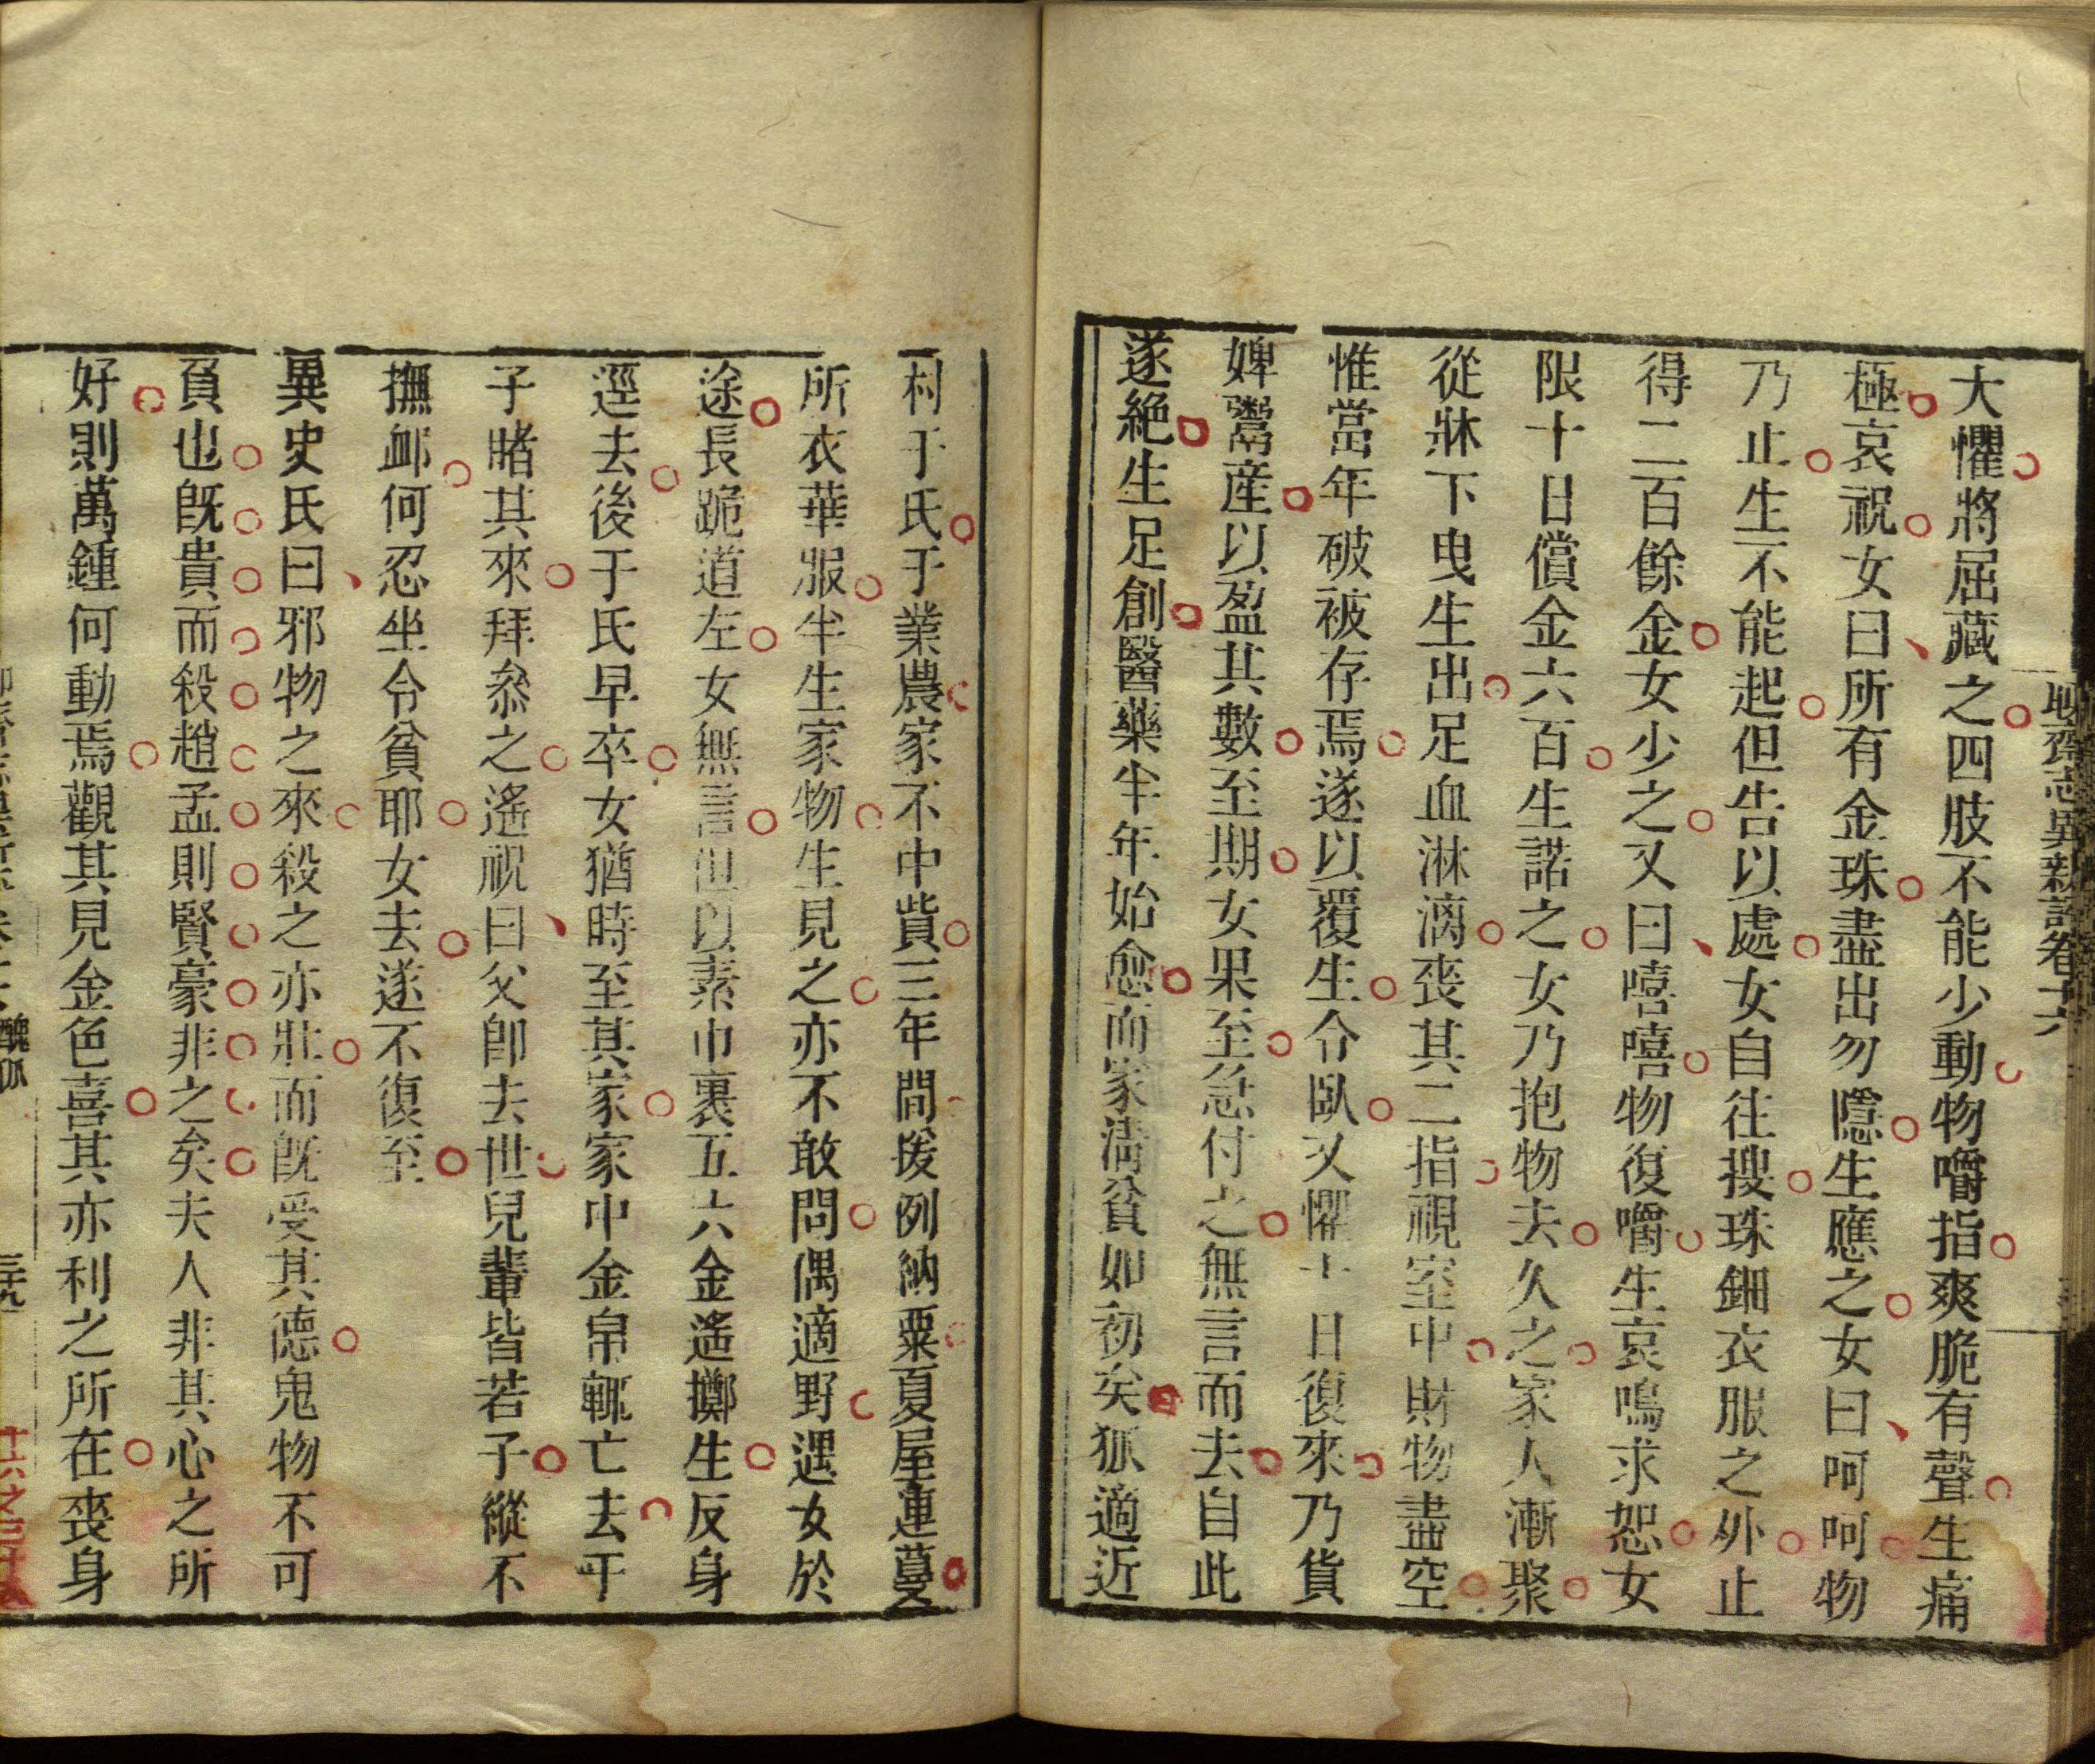 聊齋志異新評卷十六
大懼將屈藏之四肢不能少動物嚼指爽脆有聲生痛
極哀祝女曰所有金珠盡出勿隱生應之女曰呵呵物
乃止生不能起但告以處女自往搜珠鈿衣服之外止
得二百餘金女少之又曰嘻嘻物復嚼生哀鳴求恕女
限十日償金六百生諾之女乃抱物去久之家人漸聚
從牀下曳生出足血淋漓喪其二指視室中財物盡空
惟當年破被存焉遂以覆生令臥又懼十日復來乃貨
婢鬻産以盈其數至期女果至急付之無言而去自此
遂絕生足創醫藥半年始愈而家淸貧如初矣狐適近
村于氏于業農家不中貲三年間援例納粟夏屋連蔓
所衣華服半生家物生見之亦不敢問偶適野遇女於
途長跪道左女無言但以素巾裹五六金遙擲生反身
逕去後于氏早卒女猶時至其家家中金帛輒亡去于
子睹其來拜叅之遙祝曰父卽去世兒輩皆若子縱不
撫邺何忍坐令貧耶女去遂不復至
異史氏曰邪物之來殺之亦壯而旣受其德鬼物不可
負也旣貴而殺趙孟則賢豪非之矣夫人非其心之所
好則萬鍾何動焉觀其見金色喜其亦利之所在喪身
醜狐
三十九